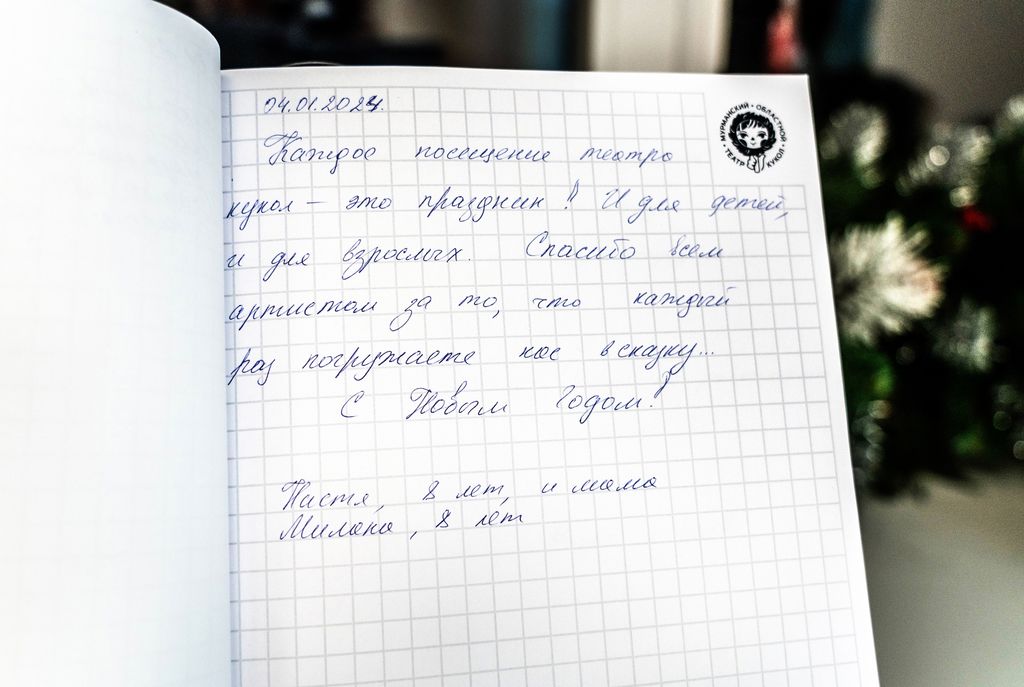 04.01.2024.
МУРМАНСКИЙ • ОБЛАСТНОЙ • ТЕАТР КУКОЛ •
Каждое посещение театра
кукол — это праздник! И для детей,
и для взрослых. Спасибо всем
артистам за то, что каждый
раз погружаете нас в сказку...
С Новым Годом!
Настя, 8 лет, и мама
Милана, 8 лет